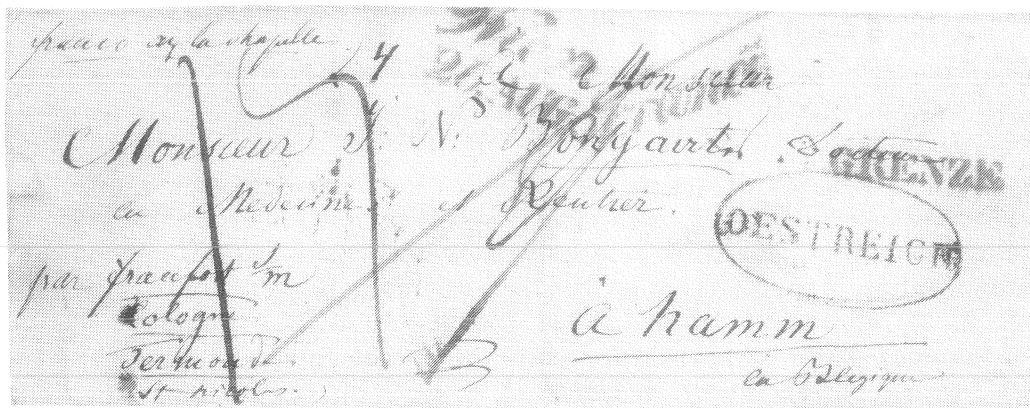 franco aix la chapelle
4
A Monsieur
Monsieur J: N: Bongaerts, Docteur
GRENZE
en Medecine et Rentier.
OESTREICH
par francfort s/m
Cologne
Termonde
St nicolas.
à hamm
en Belgique